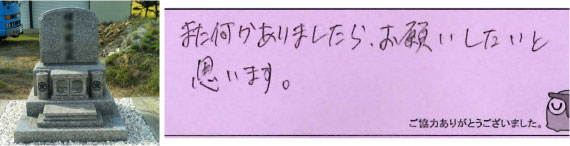 また何かありましたら、お願いしたいと
思います。
ご協力ありがとうございました。